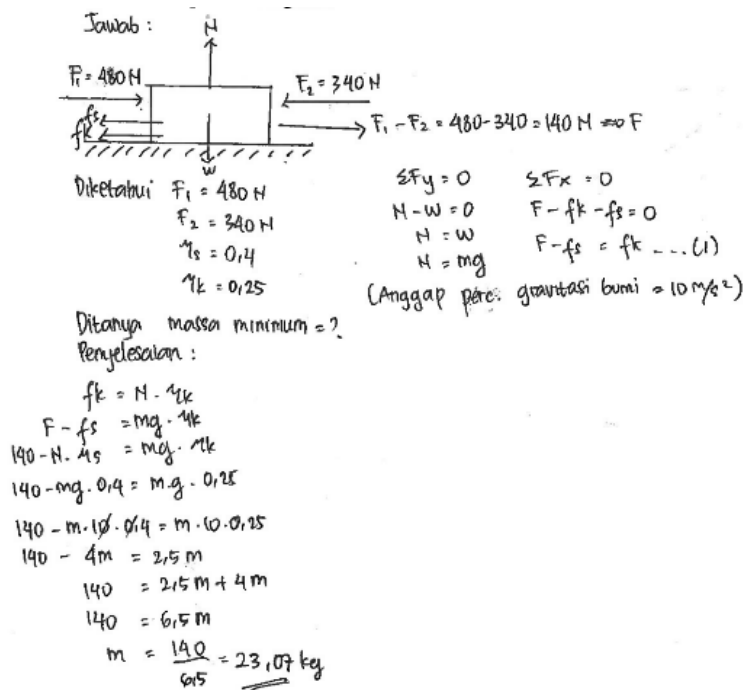 Jawab :
N
F₁ = 480 N
F₂ = 340 N
fs
fk
F₁ - F₂ = 480 - 340 = 140 N => F
w
Diketahui F₁ = 480 N
F₂ = 340 N
μs = 0,4
μk = 0,25
ΣFy = 0
N - W = 0
N = W
N = mg
ΣFx = 0
F - fk - fs = 0
F - fs = fk ... (1)
(Anggap perc. gravitasi bumi = 10 m/s²)
Ditanya massa minimum = ?
Penyelesaian :
fk = N . μk
F - fs = mg . μk
140 - N . μs = mg . μk
140 - mg . 0,4 = m.g . 0,25
140 - m . 10 . 0,4 = m . 10 . 0,25
140 - 4m = 2,5 m
140 = 2,5 m + 4 m
140 = 6,5 m
m = 140/6,5 = 23,07 kg